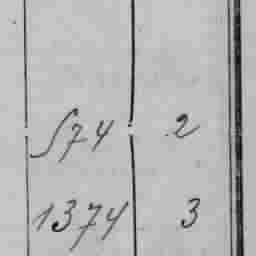 574 : 2
1374 3